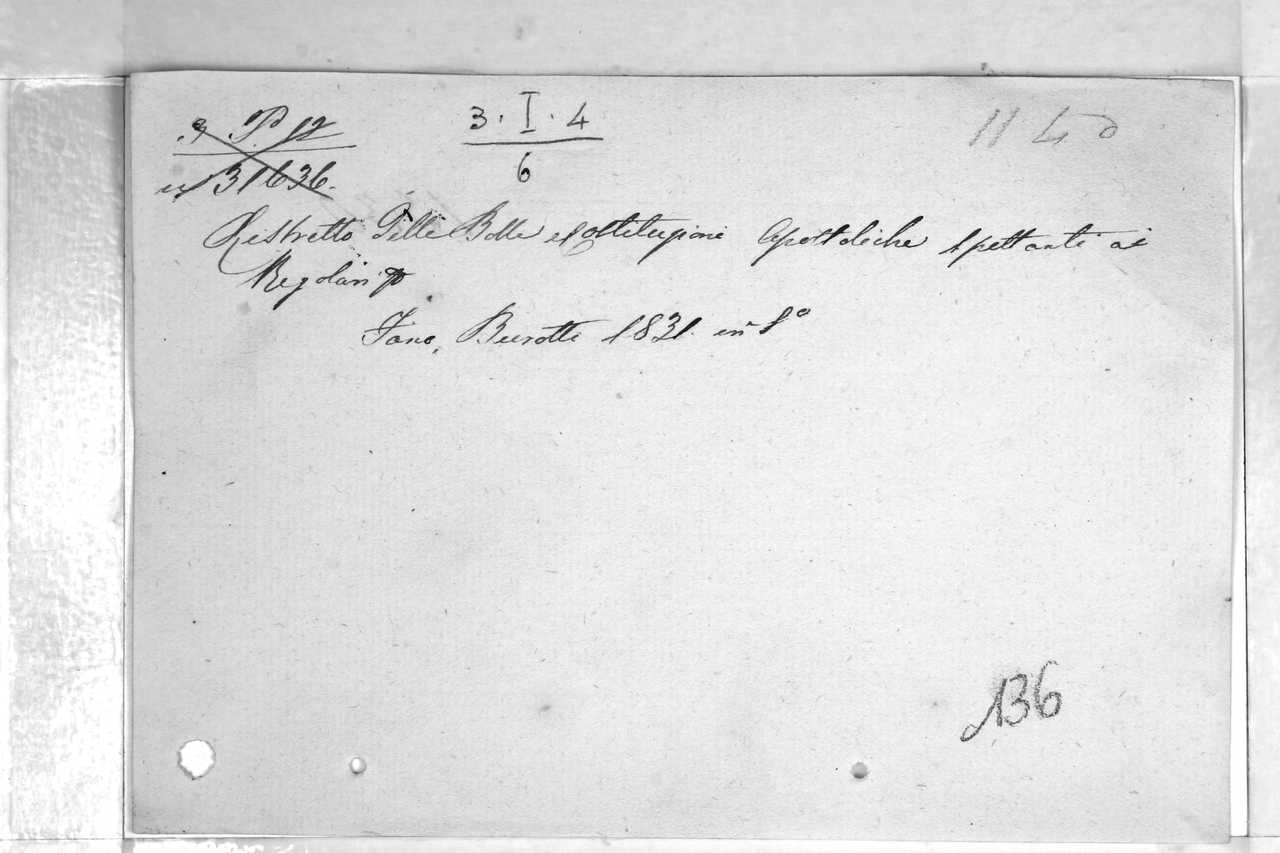 3 P. 12
n 31636.
3 · I · 4
6
1140
Ristretto delle Bolle e Costituzioni Apostoliche spettanti ai
Regolari
Fano, Burotti 1831. in 8°
136